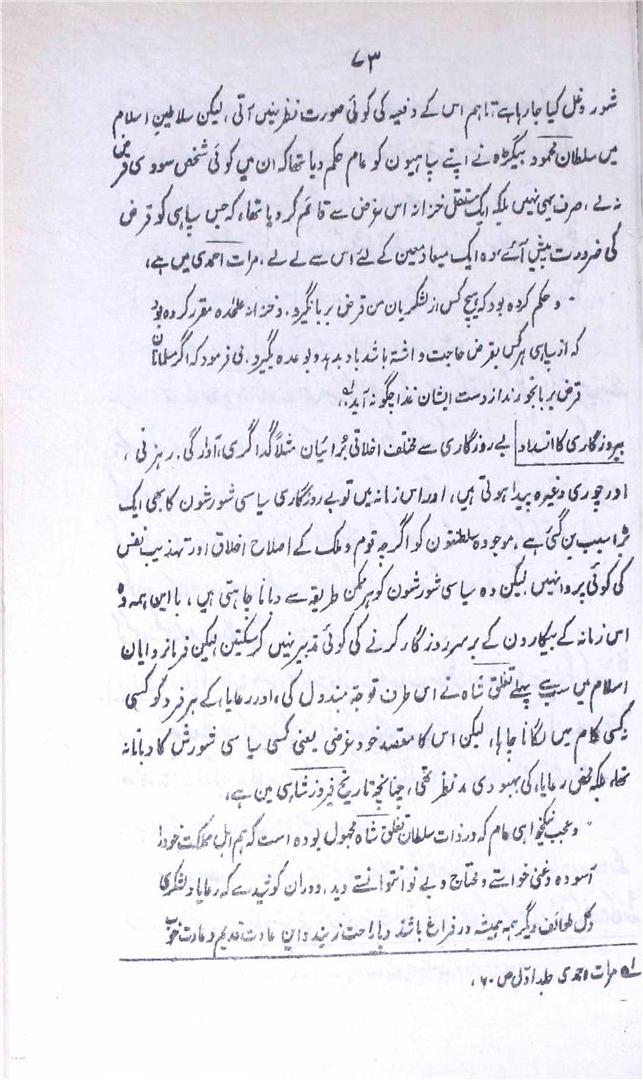 ۷۳
شور و غل کیا جا رہا ہے تاہم اس کے دفعیہ کی کوئی صورت نظر نہیں آتی، لیکن سلاطین اسلام
میں سلطان محمود بیگڑہ نے اپنے سپاہیون کو عام حکم دیا تھا کہ ان میں کوئی شخص سودی قرض
نہ لے، صرف یہی نہیں بلکہ ایک مستقل خزانہ اس غرض سے قائم کر دیا تھا، کہ جس سپاہی کو قرض
کی ضرورت پیش آئے، وہ ایک میعاد معین کے لئے اس سے لے لے، مرات احمدی میں ہے،
"و حکم کردہ بود کہ ہیچ کس از لشکریان من قرض بربا نگیرد، و خزانہ علٰحدہ مقرر کردہ بود
کہ از سپاہی ہر کس بقرض حاجت داشتہ باشد بدہد و بوعدہ بگیرد، می فرمود کہ اگر مسلمانان
قرض بربا بخورند از دست ایشان غذا چگونہ آید"
بیروزگاری کا انسداد بے روزگاری سے مختلف اخلاقی برائیان مثلاً گداگری، آوارگی، رہزنی،
اور چوری وغیرہ پیدا ہوتی ہیں، اور اس زمانہ میں تو بے روزگاری سیاسی شورشون کا بھی ایک
بڑا سبب بن گئی ہے، موجودہ سلطنتون کو اگرچہ قوم و ملک کے اصلاح اخلاق اور تہذیب نفس
کی کوئی پروا نہیں، لیکن وہ سیاسی شورشون کو ہر ممکن طریقہ سے دبانا چاہتی ہیں، با این ہمہ وہ
اس زمانہ کے بیکارون کے برسر روزگار کرنے کی کوئی تدبیر نہیں کر سکتین، لیکن فرمانروایان
اسلام میں سب سے پہلے تغلق شاہ نے اس طرف توجہ مبذول کی، اور رعایا، کے ہر فرد کو کسی
نہ کسی کام میں لگانا چاہا، لیکن اس کا مقصد خود غرضی یعنی کسی سیاسی شورش کا دبانا نہ
تھا، بلکہ محض رعایا، کی بہبودی مد نظر تھی، چنانچہ تاریخ فیروز شاہی مین ہے،
"و عجب نیکخواہی عام کہ در ذات سلطان تغلق شاہ مجبول بودہ است کہ ہم اہل مملکت خود را
آسودہ و غنی خواستے و محتاج و بے نوا نتوانستے دید، و دران کوشیدے کہ رعایا و لشکری
و کل طوائف دیگر ہمہ ہمیشہ در فراغ باشند و باراحت زیند و این عادت قدیم و عادت خوب
لہ مرات احمدی جلد اول ص ۶۰،